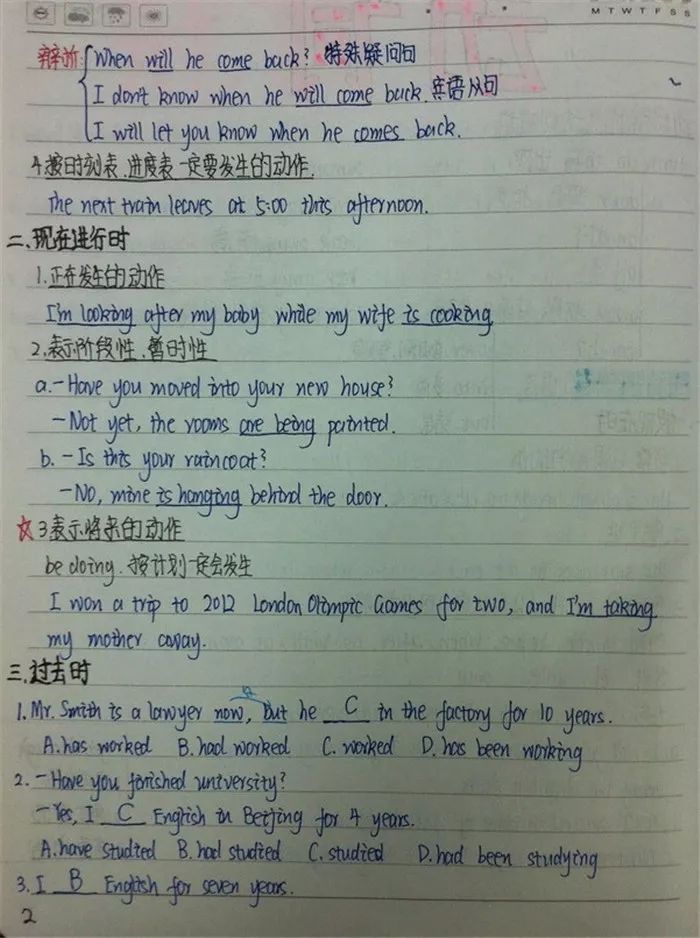 M T W T F S S
辩析: When will he come back? 特殊疑问句
I don't know when he will come back. 宾语从句
I will let you know when he comes back.
4.按时刻表.进度表一定要发生的动作.
The next train leaves at 5:00 this afternoon.
二.现在进行时
1.正在发生的动作
I'm looking after my baby while my wife is cooking
2.表示阶段性.暂时性
a.-Have you moved into your new house?
-Not yet, the rooms are being painted.
b. -Is this your raincoat?
-No, mine is hanging behind the door.
☆3表示将来的动作
be doing. 按计划一定会发生
I won a trip to 2012 London Olimpic Games for two, and I'm taking
my mother away.
三.过去时
1. Mr. Smith is a lawyer now, but he C in the factory for 10 years.
A. has worked B. had worked C. worked D. has been working
2. -Have you finished university?
-Yes, I C English in Beijing for 4 years.
A. have studied B. had studied C. studied D. had been studying
3. I B English for seven years.
2